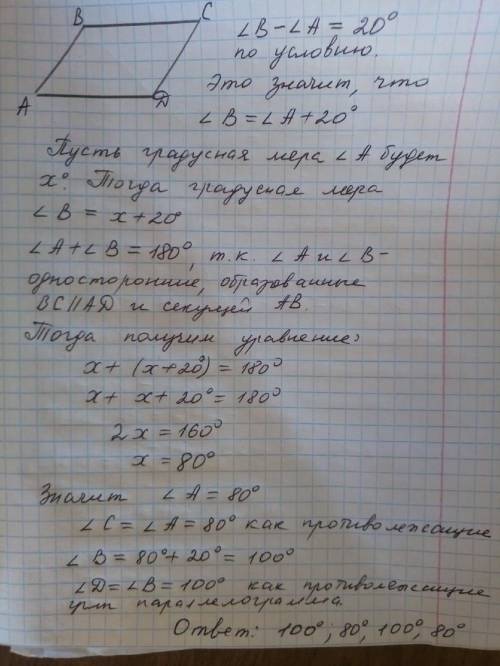 B C
∠B - ∠A = 20°
по условию.
A D
Это значит, что
∠B = ∠A + 20°
Пусть градусная мера ∠A будет
x°. Тогда градусная мера
∠B = x + 20°
∠A + ∠B = 180°, т.к. ∠A и ∠B -
односторонние, образованные
BC || AD и секущей AB.
Тогда получим уравнение:
x + (x + 20°) = 180°
x + x + 20° = 180°
2x = 160°
x = 80°
Значит ∠A = 80°
∠C = ∠A = 80° как противолежащие
∠B = 80° + 20° = 100°
∠D = ∠B = 100° как противолежащие
параллелограмма.
Ответ: 100°; 80°, 100°, 80°